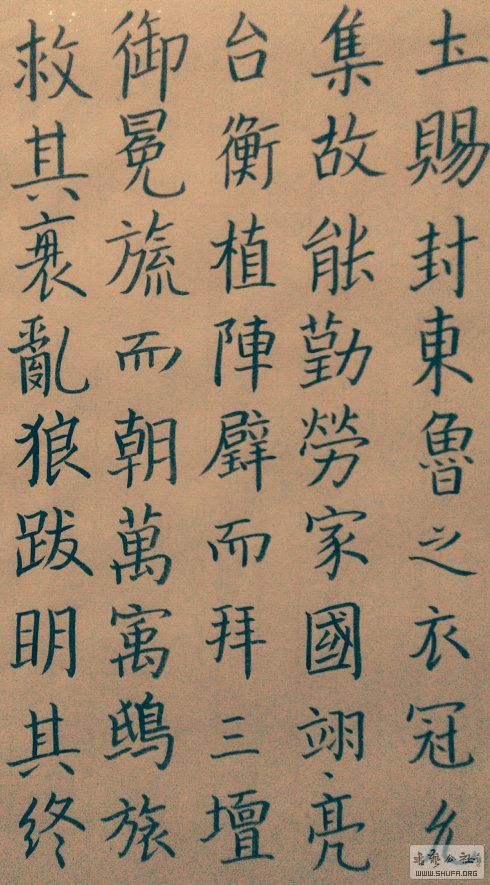 圡賜封東魯之衣冠允
集故能勤勞家國翊亮
台衡植陣而拜三壇
御冕旒而朝萬寓鴟旅
救其衰亂狼跋明其終
书艺公社
WWW.SHUFA.ORG